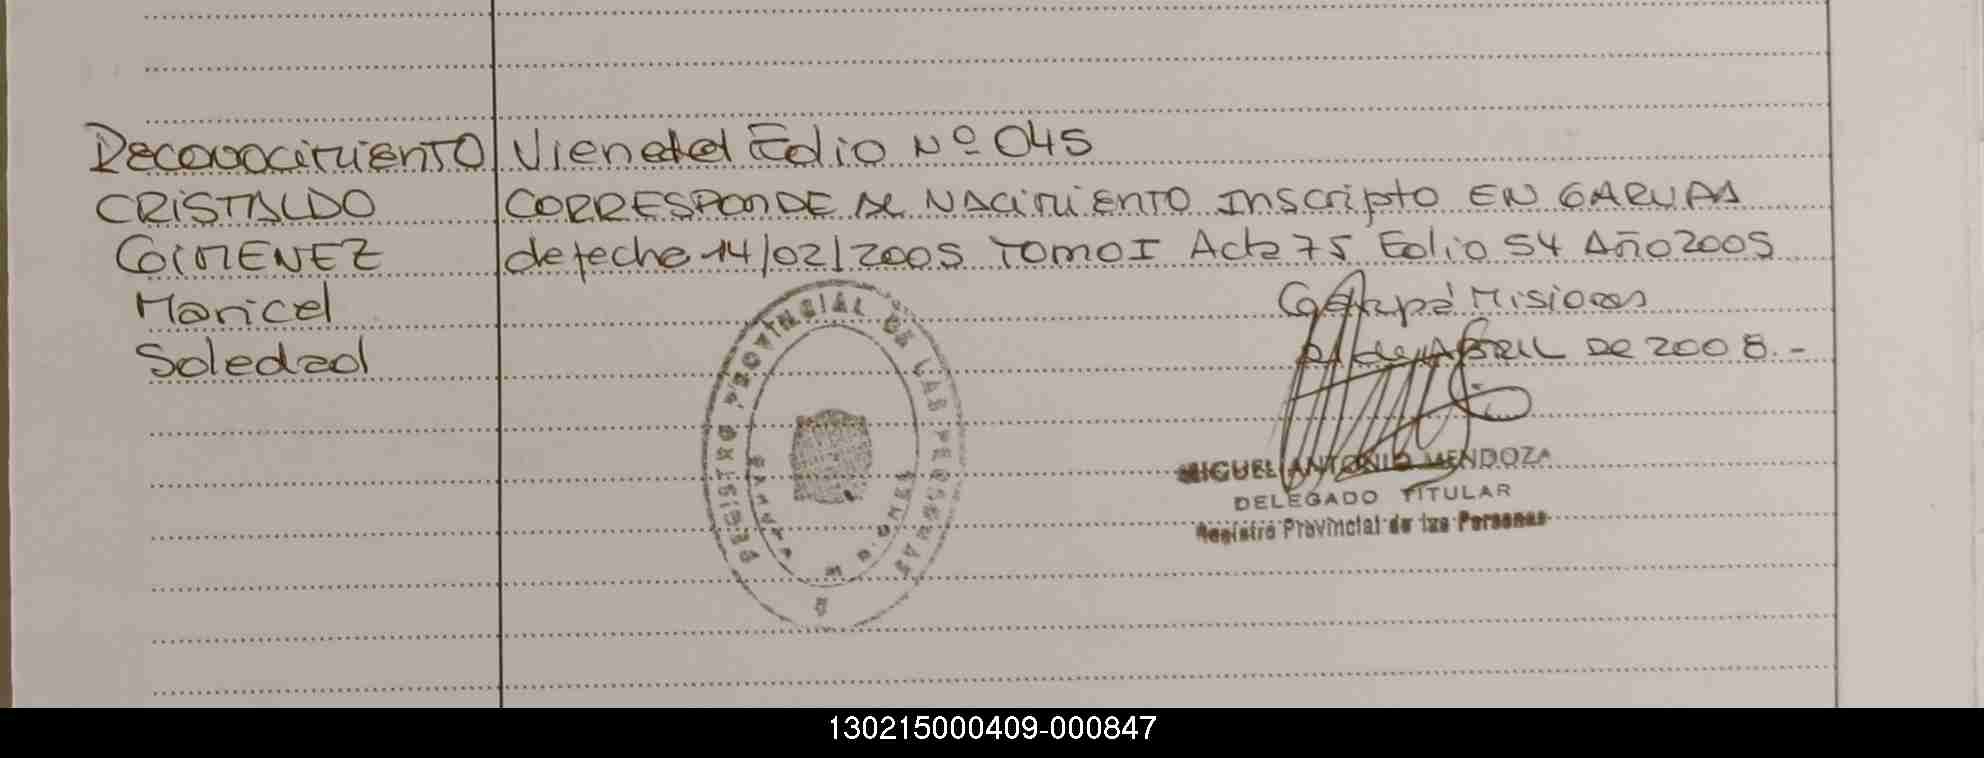 Reconocimiento Viene del Folio Nº 045
CRISTALDO CORRESPONDE AL NACIMIENTO INSCRIPTO EN GARUPA
GIMENEZ de fecha 14/02/2005 TOMO I Acta 75 Folio 54 Año 2005
Maricel Garupá Misiones
Soledad de ABRIL DE 2008.-
REGISTRO PROVINCIAL DE LAS PERSONAS
GARUPA
MIGUEL ANTONIO MENDOZA
DELEGADO TITULAR
Registro Provincial de las Personas
130215000409-000847